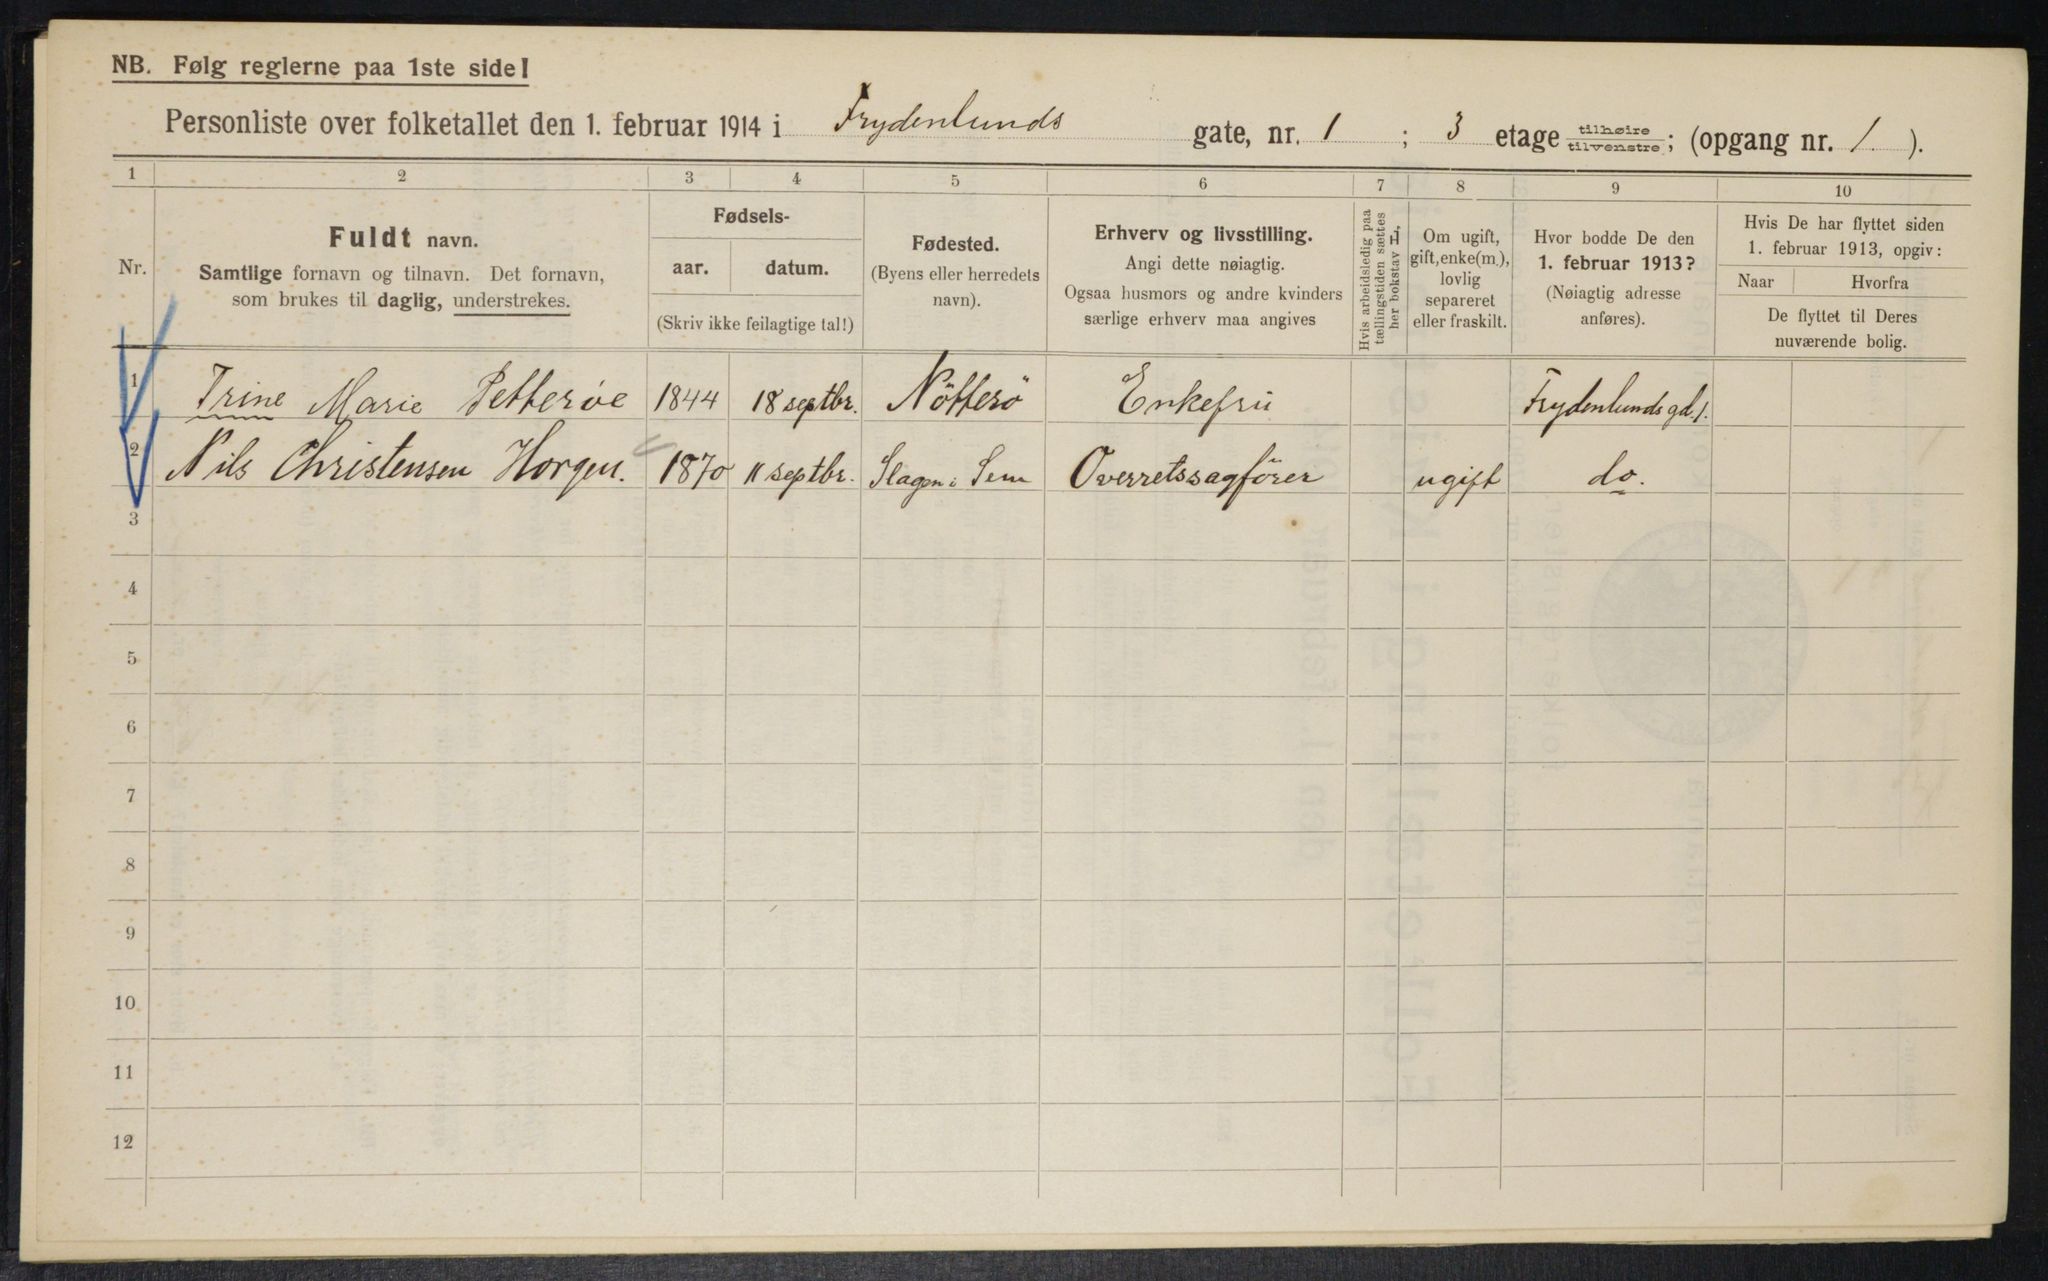 NB. Følg reglerne paa 1ste side!
Personliste over folketallet den 1. februar 1914 i Frydenlunds gate, nr. 1 ; 3 etage tilhøire tilvenstre; (opgang nr. 1 ).
1 2 3 4 5 6 7 8 9 10
Nr.
Fuldt navn.
Samtlige fornavn og tilnavn. Det fornavn,
som brukes til daglig, understrekes.
Fødsels-
aar. datum.
(Skriv ikke feilagtige tal!)
Fødested.
(Byens eller herredets
navn).
Erhverv og livsstilling.
Angi dette nøiagtig.
Ogsaa husmors og andre kvinders
særlige erhverv maa angives
Hvis arbeidsledig paa
tællingstiden sættes
her bokstav L.
Om ugift,
gift, enke(m.),
lovlig
separeret
eller fraskilt.
Hvor bodde De den
1. februar 1913?
(Nøiagtig adresse
anføres).
Hvis De har flyttet siden
1. februar 1913, opgiv:
Naar Hvorfra
De flyttet til Deres
nuværende bolig.
1 Trine Marie Petterøe 1844 18 septbr. Nötterö Enkefru Frydenlundsgd. 1.
2 Nils Christensen Horgen. 1870 11 septbr. Slagen i Sem Overretssagfører ugift do.
3
4
5
6
7
8
9
10
11
12